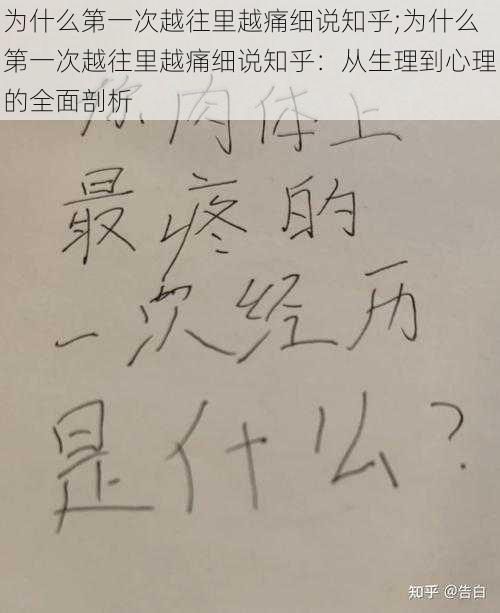 为什么第一次越往里越痛细说知乎;为什么
第一次越往里越痛细说知乎：从生理到心理
的全面剖析
你肉体上
最疼的
一次经历
是什么?
知乎 @告白